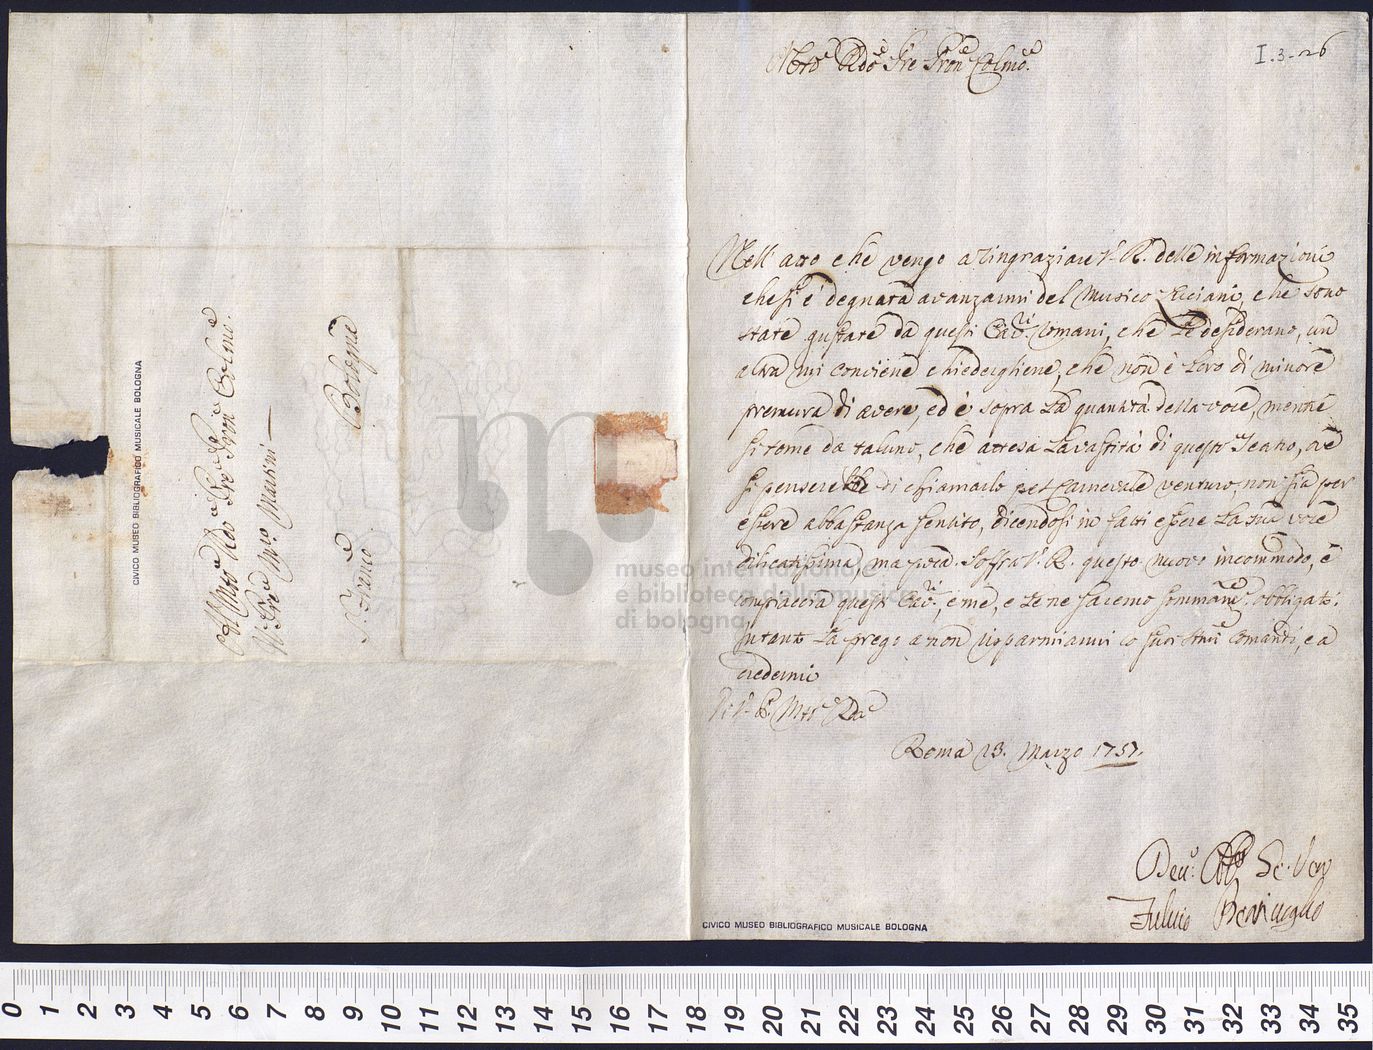 Al Mto Rdo Pre Pron Colmo.
Il Pre Mro Martini —
S. Franco
Bologna
CIVICO MUSEO BIBLIOGRAFICO MUSICALE BOLOGNA
I.3-26
Mto Rdo Pre Pron Colmo.
Nell' atto che vengo a ringraziare V. R. delle informazioni
che si è degnata avanzarmi del Musico Riciani, che sono
state gustate da questi Cavri Romani, che Le desiderano, un
altra mi conviene chiedergliene, che non è loro di minore
premura di avere, ed è sopra La quantità della voce, mentre
si teme da taluno, che attesa La vastità di questo Teatro, ove
si penserebbe di chiamarlo pel Carnevale venturo, non sia per
essere abbastanza sentito, dicendosi in fatti essere La sua voce
dilicatissima, ma poca. Soffra V. R. questo nuovo incommodo, e
compiacerà questi Cavri, e me, e Le ne saremo sommame obbligati.
Intanto La prego a non risparmiarmi i suoi stmi Comandi, e a
credermi
Di V. P. Mto Rda
Roma 23. Marzo 1757.
Devo: Obbo Se: Vero
Fulvio Bentivoglio
CIVICO MUSEO BIBLIOGRAFICO MUSICALE BOLOGNA
museo internazionale
e biblioteca della musica
di bologna
0 1 2 3 4 5 6 7 8 9 10 11 12 13 14 15 16 17 18 19 20 21 22 23 24 25 26 27 28 29 30 31 32 33 34 35